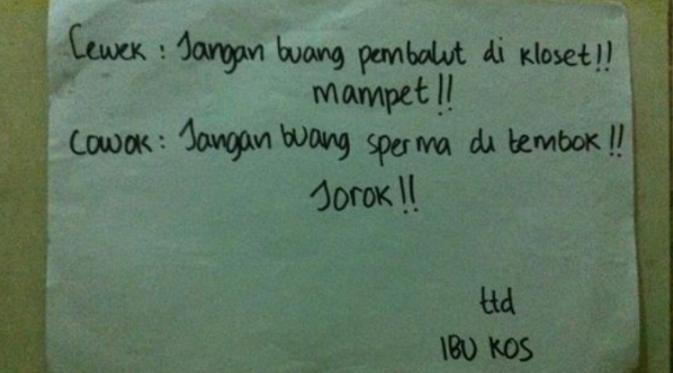 Cewek : Jangan buang pembalut di kloset!!
mampet!!
Cowok : Jangan buang sperma di tembok!!
Jorok!!
ttd
IBU KOS